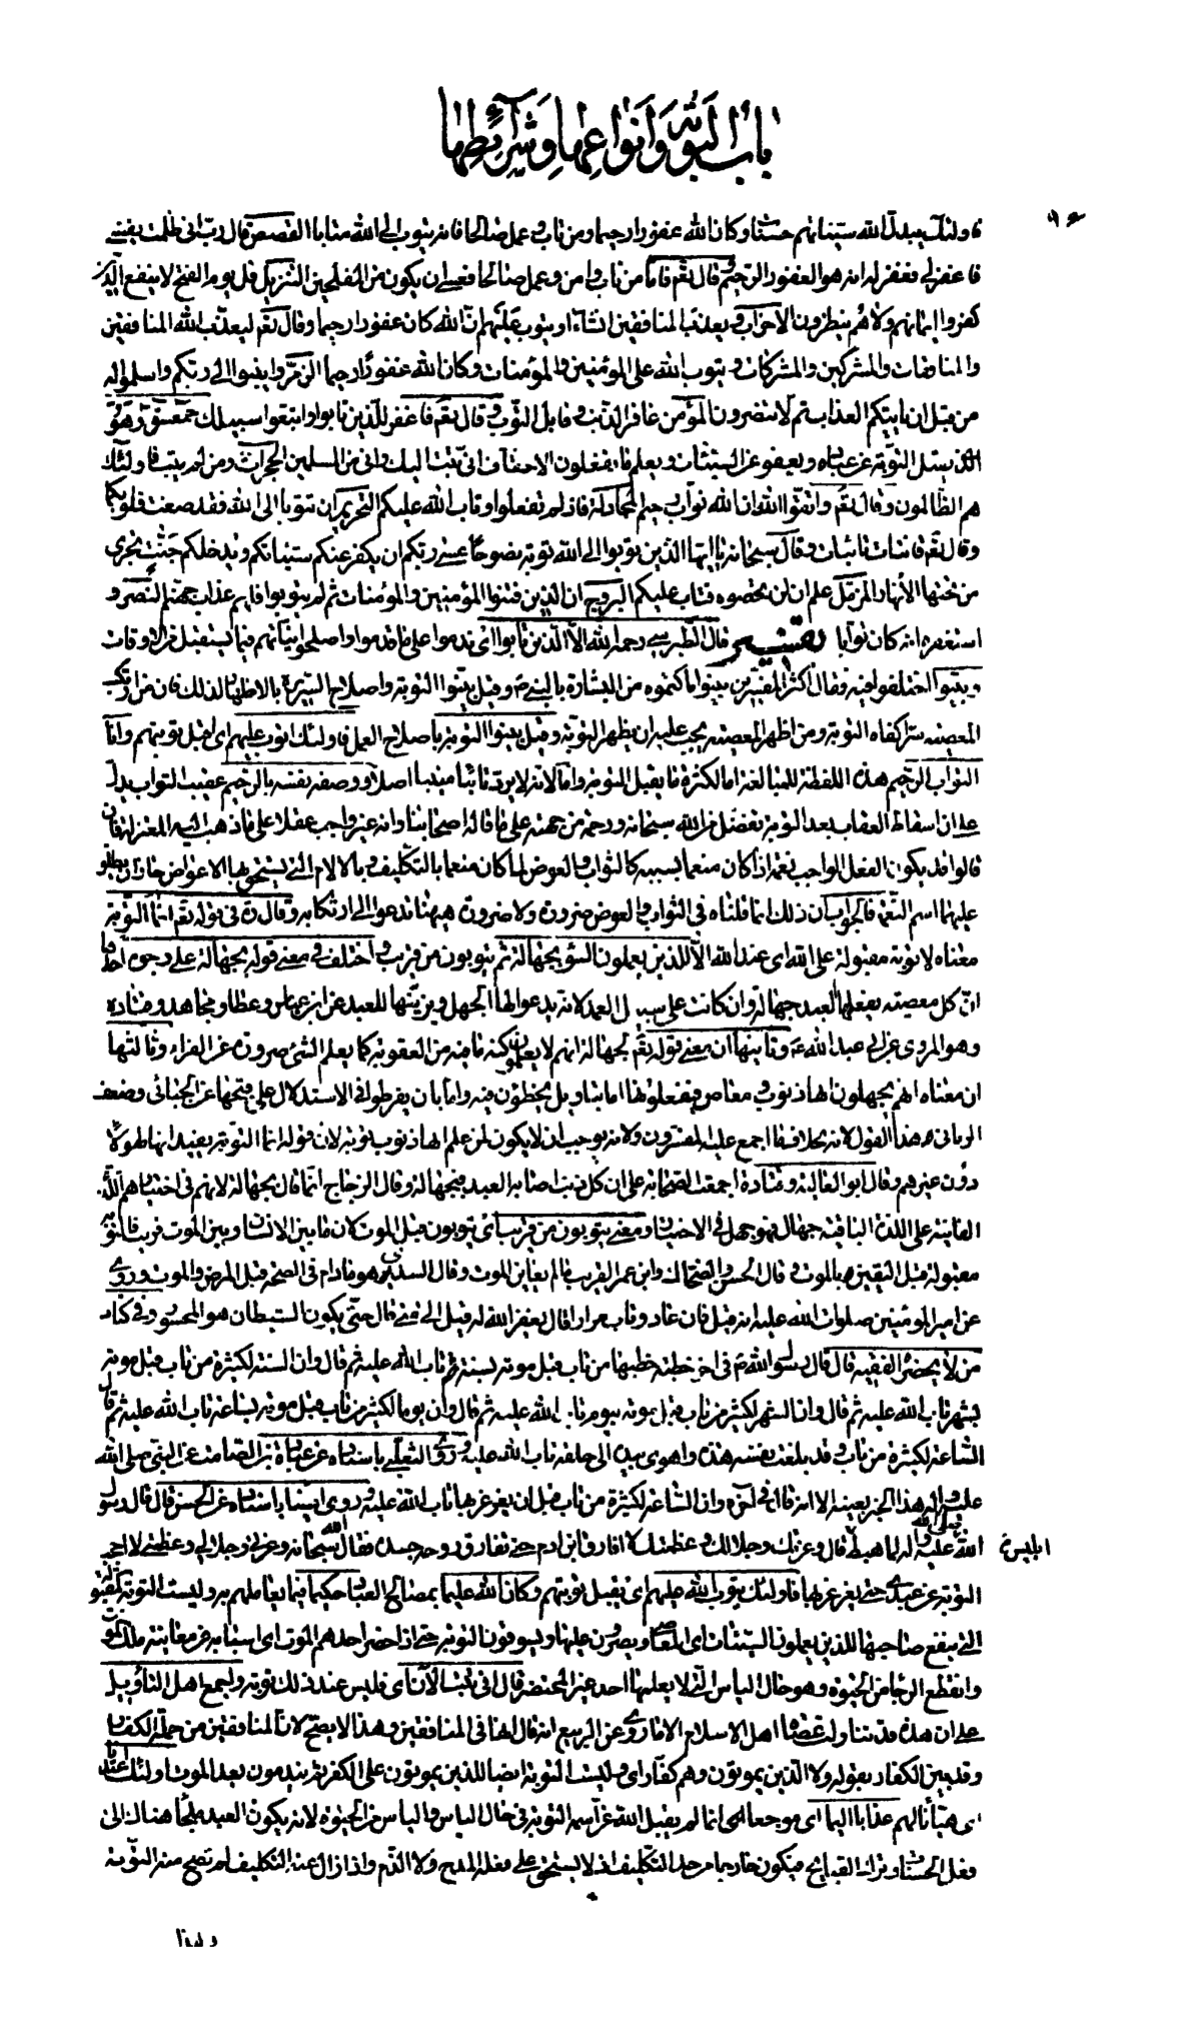 باب التوبة وانواعها وشرائطها
٩٤
فاولئك يبدل الله سيئاتهم حسنات وكان الله غفورا رحيما ومن تاب وعمل صالحا فانه يتوب الى الله متابا القصص قال رب انى ظلمت نفسى
فاغفر لى فغفر له انه هو الغفور الرحيم وقال تعم فاما من تاب وامن وعمل صالحا فعسى ان يكون من المفلحين التنزيل قل يوم الفتح لا ينفع الذين
كفروا ايمانهم ولا هم ينظرون الاحزاب ويعذب المنافقين انشاء او يتوب عليهم ان الله كان غفورا رحيما وقال تعم ليعذب الله المنافقين
والمنافقات والمشركين والمشركات ويتوب الله على المؤمنين والمؤمنات وكان الله غفورا رحيما الزمر وانيبوا الى ربكم واسلموا له
من قبل ان ياتيكم العذاب ثم لا تنصرون المؤمن غافر الذنب وقابل التوب وقال تعم فاغفر للذين تابوا واتبعوا سبيلك حمعسق وهو
الذى يقبل التوبة عن عباده ويعفو عن السيئات ويعلم ما يفعلون الاحقاف انى تبت اليك وانى من المسلمين الحجرات ومن لم يتب فاولئك
هم الظالمون وقال تعم واتقوا الله ان الله تواب رحيم المجادلة فاذ لم تفعلوا وتاب الله عليكم التحريم ان تتوبا الى الله فقد صغت قلوبكما
وقال تعم قانتات تائبات وقال سبحانه يا ايها الذين توبوا الى الله توبة نصوحا عسى ربكم ان يكفر عنكم سيئاتكم ويدخلكم جنت تجرى
من تحتها الأنهار المزمل علم ان لن تحصوه فتاب عليكم البروج ان الذين فتنوا المؤمنين والمؤمنات ثم لم يتوبوا فلهم عذاب جهنم النصر و
استغفره انه كان توابا تفسير قال الطبرسى رحمه الله الا الذين تابوا اى ندموا على ما قدموا واصلحوا نياتهم فيما يستقبل من الاوقات
وبينوا اختلفوا فيه فقال اكثر المفسرين بينوا ما كتموه من البشارة بالنبى ص وقيل بينوا التوبة واصلاح السريرة بالاظهار لذلك فان من ارتكب
المعصية سرا كفاه التوبة ومن اظهر المعصية يجب عليه ان يظهر التوبة وقيل بينوا التوبة باصلاح العمل فاولئك اتوب عليهم اى اقبل توبتهم وانا
التواب الرحيم هذه اللفظة للمبالغة اما لكثرة ما يقبل التوبة واما لانه لا يرد تائبا منيبا اصلا ووصفه نفسه بالرحيم عقيب التواب يدل
على ان اسقاط العقاب بعد التوبة تفضل من الله سبحانه ورحمة من جهته على ما قاله اصحابنا وانه غير واجب عقلا على ما ذهب اليه المعتزلة فان
قالوا قد يكون الفعل الواجب نعمة اذا كان منعما بسببه كالثواب والعوض لما كان منعما بالتكليف وبالالام التى يستحق بها الاعواض جاز ان يطلق
عليها اسم النعمة فالجواب ان ذلك انما قلناه فى الثواب والعوض ضرورة ولا ضرورة هيهنا تدعوا الى ارتكابه وقال ره فى قوله تعم انما التوبة
معناه لا توبة مقبولة على الله اى عند الله الا للذين يعملون السوء بجهالة ثم يتوبون من قريب واختلف فى معنى قوله بجهالة على وجوه احدها
ان كل معصية يفعلها العبد جهالة وان كانت على سبيل العمد لانه يدعوا لها الجهل ويزينها للعبد عن ابن عباس وعطا ومجاهد وقتادة
وهو المروى عن ابى عبد الله ع وثانيها ان معنى قوله تعم بجهالة انهم لا يعلمون كنه ما فيه من العقوبة كما يعلم الشئ ضرورة عن الفراء وثالثها
ان معناه انهم يجهلون انها ذنوب ومعاص فيفعلونها اما بتاويل يخطئون فيه واما بان يفرطوا فى الاستدلال على قبحها عن الجبائى وضعف
الرمانى هذا القول لانه بخلاف ما اجمع عليه المفسرون ولانه يوجب ان لا يكون لمن علم انها ذنوب توبة لان قوله انما التوبة يفيد انها لهولاء
دون غيرهم وقال ابو العالية وقتادة اجمعت الصحابة على ان كل ذنب اصابه العبد فبجهالة وقال الزجاج انما قال بجهالة لانهم فى اختيارهم اللذة
الفانية على اللذة الباقية جهال فهو جهل فى الاختيار ومعنى يتوبون من قريب اى يتوبون قبل الموت كان ما بين الانسان وبين الموت قريب فالتوبة
مقبولة قبل اليقين بالموت وقال الحسن والضحاك وابن عمر القريب ما لم يعاين الموت وقال السدى هو ما دام فى الصحة قبل المرض والموت وروى
عن امير المؤمنين صلوات الله عليه انه قيل فان عاد وتاب مرارا قال يغفر الله له قيل الى متى قال حتى يكون الشيطان هو المحسور وفى كتاب
من لا يحضره الفقيه قال قال رسول الله ص فى اخر خطبة خطبها من تاب قبل موته بسنة تاب الله عليه ثم قال وان السنة لكثيرة من تاب قبل موته
بشهر تاب الله عليه ثم قال وان الشهر لكثير من تاب قبل موته بيوم تاب الله عليه ثم قال وان يوما لكثير من تاب قبل موته بساعة تاب الله عليه ثم قال
الساعة لكثيرة من تاب وقد بلغت نفسه هذه واهوى بيده الى حلقه تاب الله عليه وروى الثعلبى باسناده عن عبادة بن الصامت عن النبى صلى الله
عليه واله هذا الخبر بعينه الا انه قال فى اخره وان الساعة لكثيرة من تاب قبل ان يغرغر بها تاب الله عليه وروى ايضا باسناده عن الحسن قال قال رسول
الله صلى الله عليه واله لما هبط ابليس قال وعزتك وجلالك وعظمتك لا افارق ابن ادم حتى تفارق روحه جسده فقال الله سبحانه وعزتى وجلالى وعظمتى لا احجب
التوبة عن عبدى حتى يغرغر بها فاولئك يتوب الله عليهم اى يقبل توبتهم وكان الله عليما بمصالح العباد حكيما فيما يعاملهم به وليست التوبة المقبولة
التى ينفع صاحبها للذين يعملون السيئات اى المعاصى ويصرون عليها ويسوفون التوبة حتى اذا حضر احدهم الموت اى اسبابه من معاينة ملك الموت
وانقطع الرجا من الحيوة وهو حال الياس التى لا يعلمها احد غير المحتضر قال انى تبت الآن اى فليس عند ذلك توبة واجمع اهل التأويل
على ان هذه قد تناولت عصاة اهل الاسلام الا ما روى عن الربيع انه قال انها فى المنافقين وهذا لا يصح لان المنافقين من جملة الكفار
وقد بين الكفار بقوله ولا الذين يموتون وهم كفار اى وليست التوبة ايضا للذين يموتون على الكفر ثم يندمون بعد الموت اولئك اعتدنا
اى هيأنا لهم عذابا اليما اى موجعا انما لم يقبل الله عز اسمه التوبة فى حال الياس والياس من الحيوة لانه يكون العبد ملجأ هناك الى
فعل الحسنات وترك القبايح فيكون خارجا من حد التكليف اذ لا يستحق على فعله المدح ولا الذم واذا زال عنه التكليف لم تصح منه التوبة
ولهذا